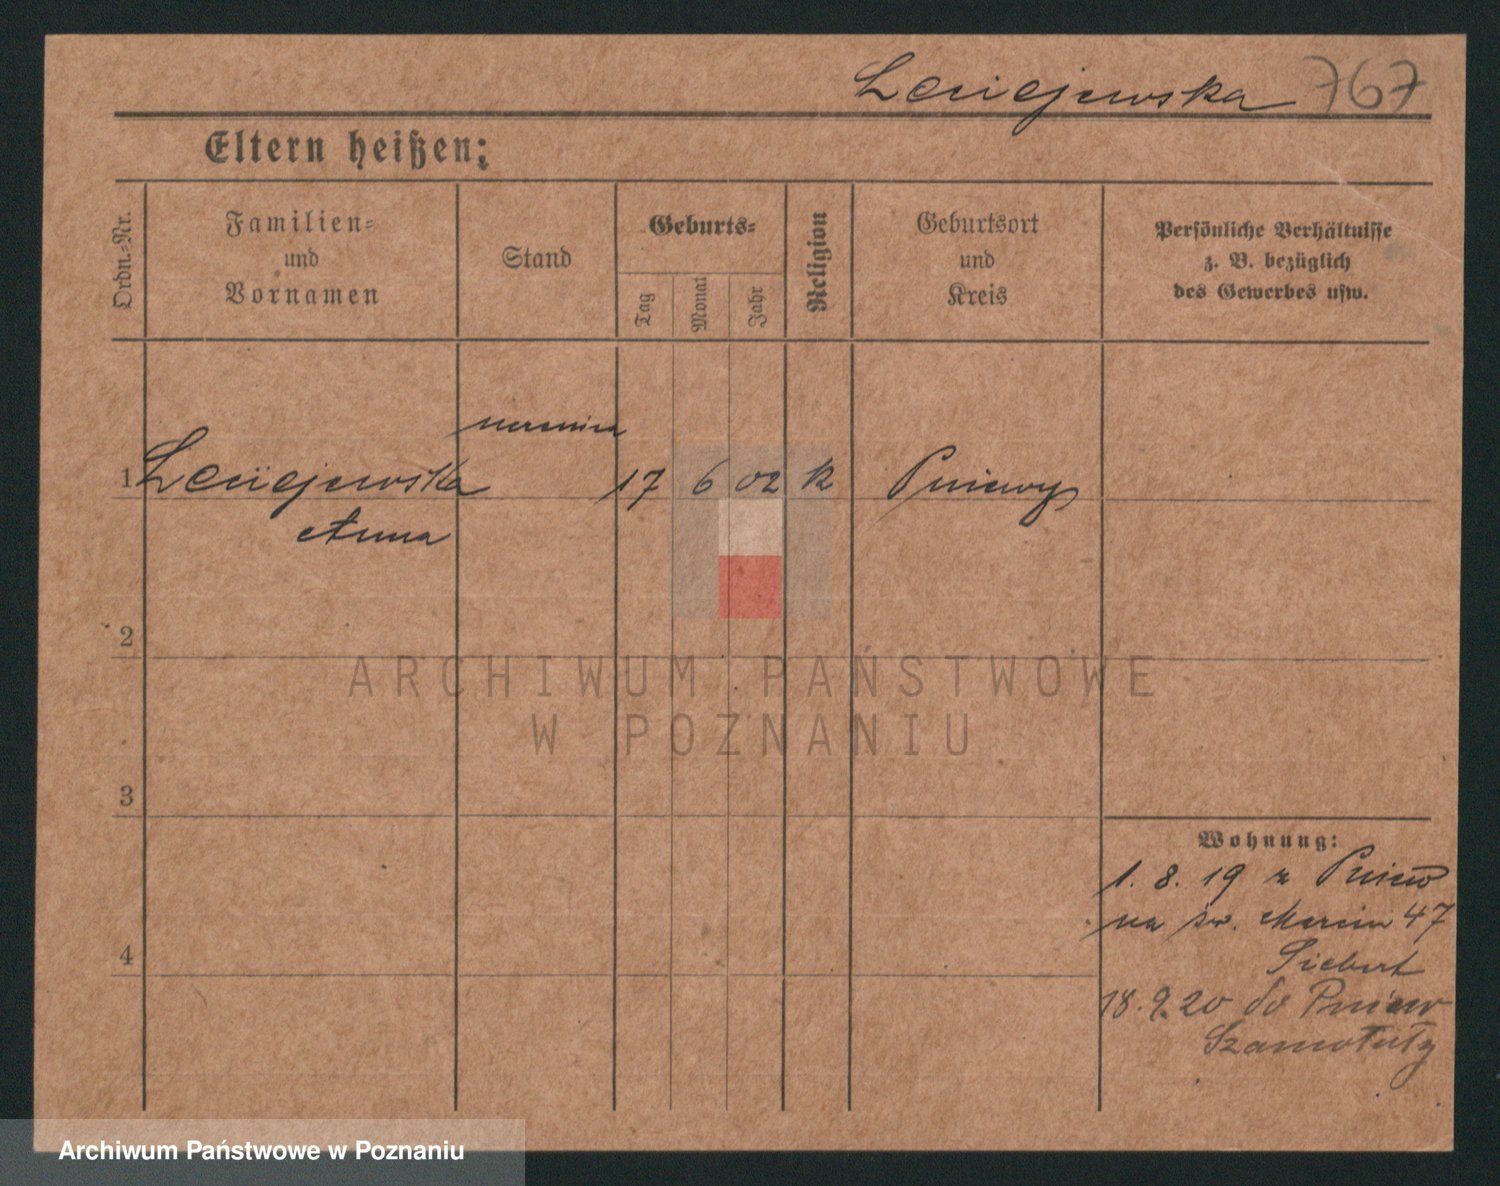 Leciejewska 767
Eltern heißen:
Ordn.-Nr.
Familien-
und
Vornamen
Stand
Geburts-
Tag
Monat
Jahr
Religion
Geburtsort
und
Kreis
Persönliche Verhältnisse
z. B. bezüglich
des Gewerbes usw.
1 Leciejewska 17 6 02 k Pniewy
Anna
2
3
4
Wohnung:
1. 8. 19 z Pniew
na św. Marcin 47
Siebert
18. 9. 20 do Pniew
Szamotuły
ARCHIWUM PAŃSTWOWE
W POZNANIU
Archiwum Państwowe w Poznaniu